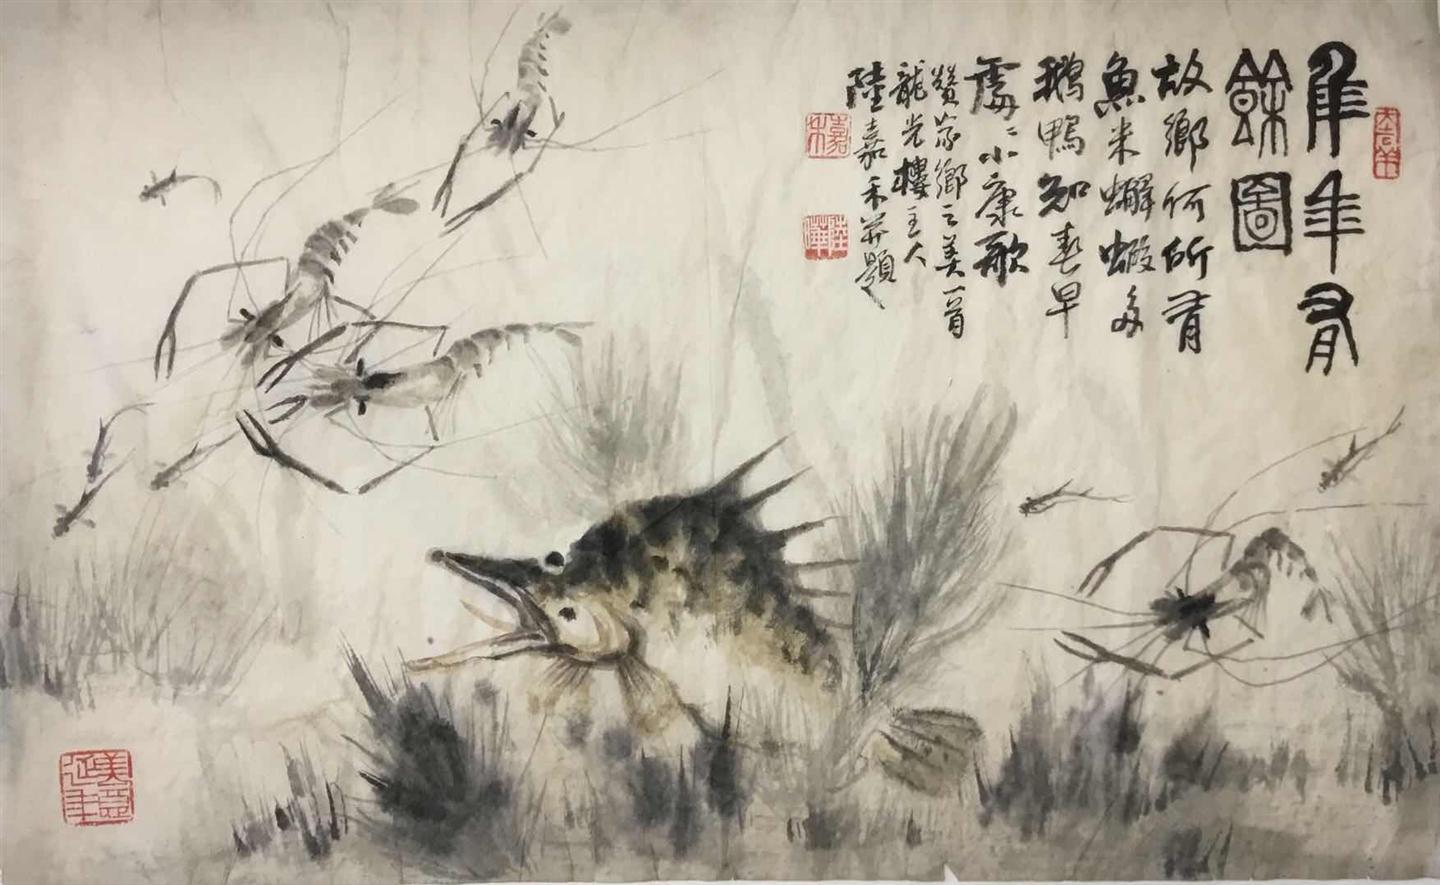 年年有
餘圖
故鄉何所有
魚米蠏蝦多
鵝鴨知春早
處〻小康歌
贊家鄉之美一首
龍光樓主人
陸嘉禾并題
嘉禾
美意延年